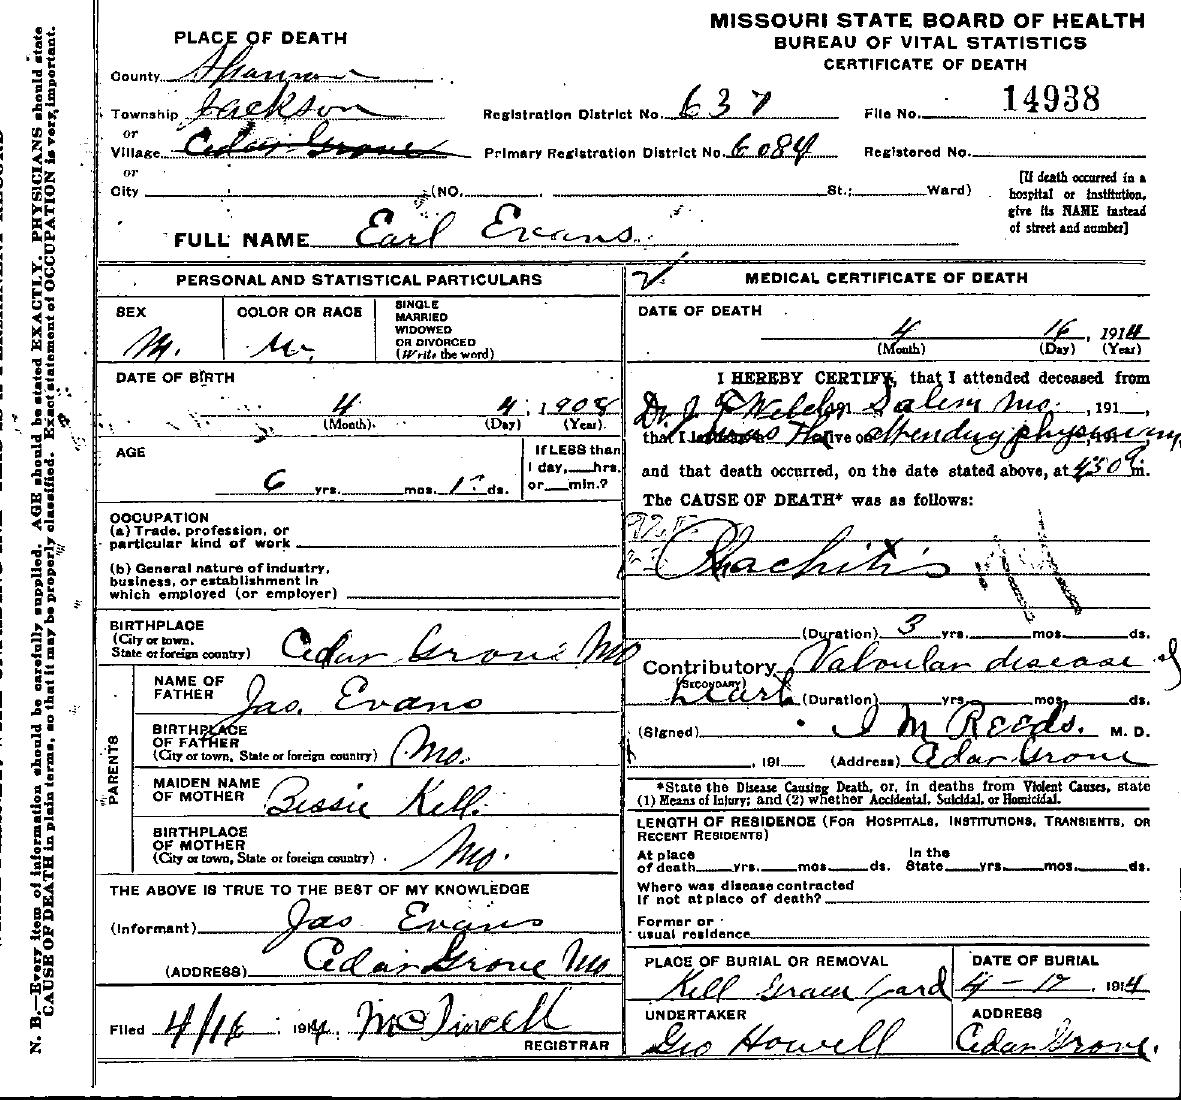 MISSOURI STATE BOARD OF HEALTH
BUREAU OF VITAL STATISTICS
CERTIFICATE OF DEATH
PLACE OF DEATH
County Shannon
Township Jackson
or
Village Cedar Grove
or
City (NO. St.; Ward)
Registration District No. 637
Primary Registration District No. 6084
File No. 14938
Registered No.
[If death occurred in a
hospital or institution,
give its NAME instead
of street and number]
FULL NAME Earl Evans
PERSONAL AND STATISTICAL PARTICULARS
SEX
M.
COLOR OR RACE
W.
SINGLE
MARRIED
WIDOWED
OR DIVORCED
(Write the word)
DATE OF BIRTH
4 4, 1908
(Month). (Day) (Year).
AGE
6 yrs. mos. ds.
If LESS than
1 day, hrs.
or min.?
OCCUPATION
(a) Trade, profession, or
particular kind of work
(b) General nature of industry,
business, or establishment in
which employed (or employer)
BIRTHPLACE
(City or town,
State or foreign country)
Cedar Grove Mo
PARENTS
NAME OF
FATHER
Jas. Evans
BIRTHPLACE
OF FATHER
(City or town, State or foreign country)
Mo.
MAIDEN NAME
OF MOTHER
Bessie Kell.
BIRTHPLACE
OF MOTHER
(City or town, State or foreign country)
Mo.
THE ABOVE IS TRUE TO THE BEST OF MY KNOWLEDGE
(Informant) Jas Evans
(ADDRESS) Cedar Grove Mo
Filed 4/16, 1914,
REGISTRAR
MEDICAL CERTIFICATE OF DEATH
DATE OF DEATH
4 16, 1914
(Month) (Day) (Year)
I HEREBY CERTIFY, that I attended deceased from
Dr. J Welch 191 Salem Mo. , 191 ,
that I was The attending physician
and that death occurred, on the date stated above, at 430 m.
The CAUSE OF DEATH* was as follows:
Rhachitis
(Duration) 3 yrs. mos. ds.
Contributory Valvular disease of
(SECONDARY)
heart (Duration) yrs. mos. ds.
(Signed) I M Reeds. M. D.
, 191 (Address) Cedar Grove
*State the Disease Causing Death, or, in deaths from Violent Causes, state
(1) Means of Injury; and (2) whether Accidental, Suicidal, or Homicidal.
LENGTH OF RESIDENCE (FOR HOSPITALS, INSTITUTIONS, TRANSIENTS, OR
RECENT RESIDENTS)
At place
of death yrs. mos. ds.
In the
State yrs. mos. ds.
Where was disease contracted
if not at place of death?
Former or
usual residence
PLACE OF BURIAL OR REMOVAL
Kell Grave yard
DATE OF BURIAL
4-17, 1914
UNDERTAKER
Geo Howell
ADDRESS
Cedar Grove.
N. B.—Every item of information should be carefully supplied. AGE should be stated EXACTLY. PHYSICIANS should state
CAUSE OF DEATH in plain terms, so that it may be properly classified. Exact statement of OCCUPATION is very important.